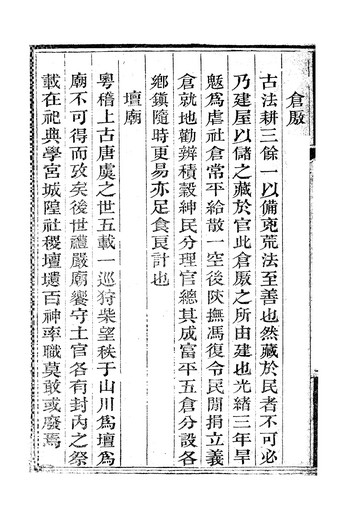 倉厫
古法耕三餘一以備兇荒法至善也然藏於民者不可必
乃建屋以儲之藏於官此倉厫之所由建也光緒三年旱
魃爲虐社倉常平給散一空後陝撫馮復令民間捐立義
倉就地勸辦積穀紳民分理官總其成富平五倉分設各
鄉鎮隨時更易亦足食良計也
壇廟
粵稽上古唐虞之世五載一巡狩柴望秩于山川爲壇爲
廟不可得而攷矣後世禮嚴廟饗守土官各有封内之祭
載在祀典學宮城隍社稷壇壝百神率職莫敢或廢焉